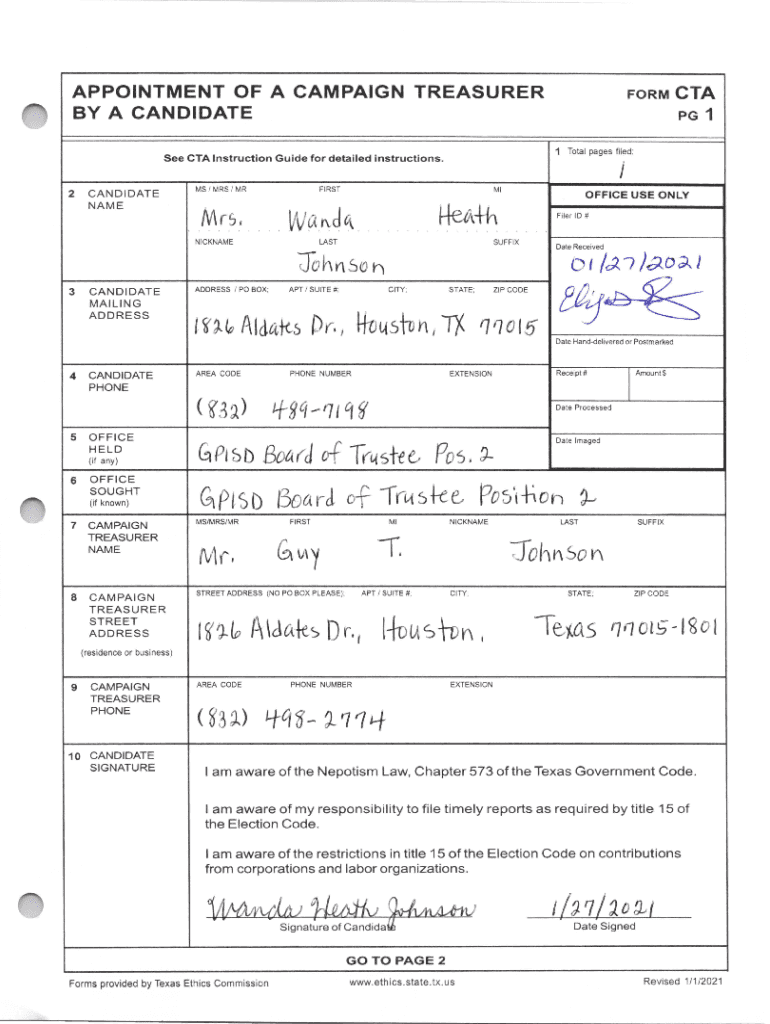 APPOINTMENT OF A CAMPAIGN TREASURER
BY A CANDIDATE
FORM CTA
PG 1
See CTA Instruction Guide for detailed instructions.
1 Total pages filed:
1
2 CANDIDATE
NAME
MS / MRS / MR FIRST MI
Mrs. Wanda Heath
NICKNAME LAST SUFFIX
Johnson
OFFICE USE ONLY
Filer ID #
Date Received
01/27/2021
3 CANDIDATE
MAILING
ADDRESS
ADDRESS / PO BOX; APT / SUITE #; CITY; STATE; ZIP CODE
1826 Aldates Dr., Houston, TX 77015
Date Hand-delivered or Postmarked
4 CANDIDATE
PHONE
AREA CODE PHONE NUMBER EXTENSION
(832) 489-7198
Receipt # Amount $
Date Processed
5 OFFICE
HELD
(if any)
GPISD Board of Trustee Pos. 2
Date Imaged
6 OFFICE
SOUGHT
(if known)
GPISD Board of Trustee Position 2
7 CAMPAIGN
TREASURER
NAME
MS/MRS/MR FIRST MI NICKNAME LAST SUFFIX
Mr. Guy T. Johnson
8 CAMPAIGN
TREASURER
STREET
ADDRESS
(residence or business)
STREET ADDRESS (NO PO BOX PLEASE); APT / SUITE #; CITY; STATE; ZIP CODE
1826 Aldates Dr., Houston, Texas 77015-1801
9 CAMPAIGN
TREASURER
PHONE
AREA CODE PHONE NUMBER EXTENSION
(832) 498-2774
10 CANDIDATE
SIGNATURE
I am aware of the Nepotism Law, Chapter 573 of the Texas Government Code.
I am aware of my responsibility to file timely reports as required by title 15 of
the Election Code.
I am aware of the restrictions in title 15 of the Election Code on contributions
from corporations and labor organizations.
Wanda Heath Johnson 1/27/2021
Signature of Candidate Date Signed
GO TO PAGE 2
Forms provided by Texas Ethics Commission www.ethics.state.tx.us Revised 1/1/2021